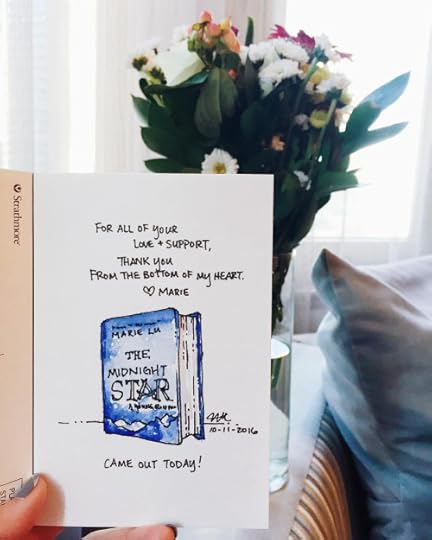 Strathmore
FOR ALL OF YOUR
LOVE + SUPPORT,
THANK YOU
FROM THE BOTTOM OF MY HEART.
♡ MARIE
MARIE LU
THE
MIDNIGHT
STAR
10-11-2016
CAME OUT TODAY!